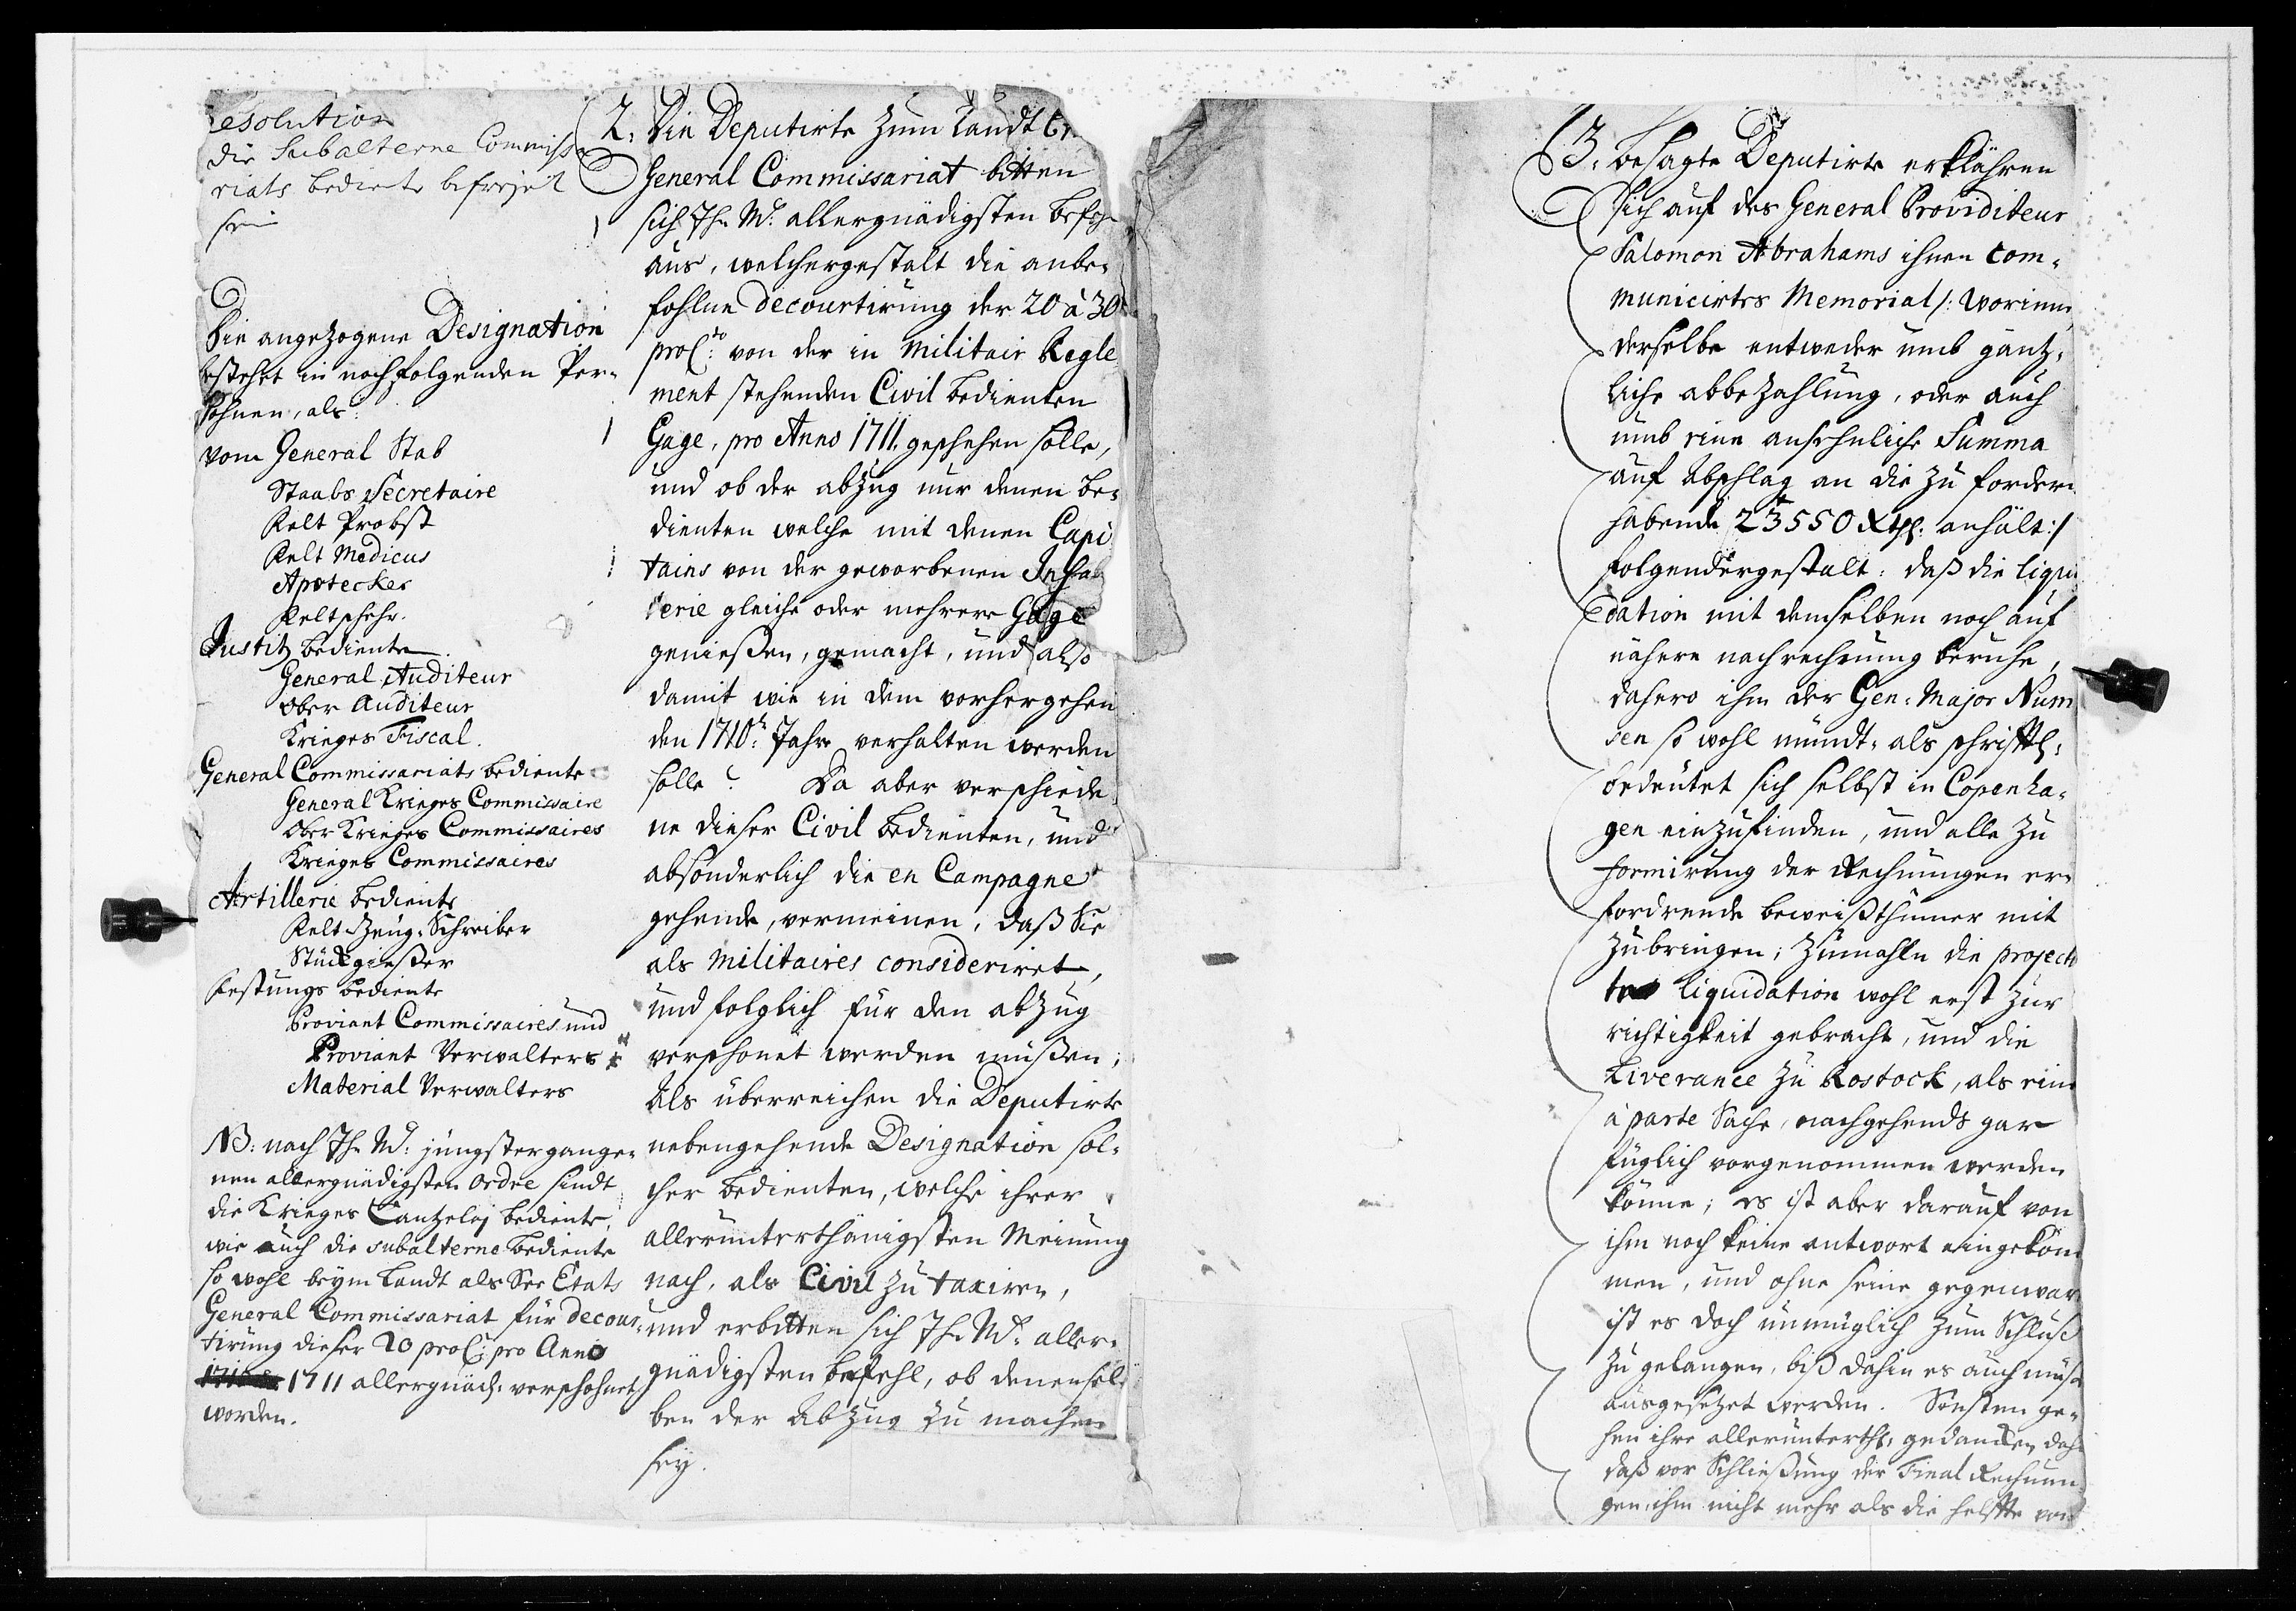 esolution
die Subalterne Commissa
riats bediente befreyet
sein
Die angezogene Designation
bestehet in nachfolgenden Per-
sohnen, als:
vom General Stab
Staabs Secretaire
Felt Probst
Felt Medicus
Apotecker
Feltscher.
Justitz bediente.
General Auditeur
Ober Auditeur
Krieges Fiscal.
General Commissariats bediente
General Krieges Commissaire
Ober Krieges Commissaires
Krieges Commissaires
Artillerie bediente
Felt-Zeug-Schreiber
Stückgießer
Festungs bediente
Proviant Commissaires und
Proviant Verwalters
Material Verwalters
NB: nach Ih. M: jüngstergange-
nen allergnädigsten Ordre sindt
die Krieges Cantzeley bediente,
wie auch die subalterne bediente
so wohl beym Landt als See Etats
General Commissariat für decour-
tirung dieser 20 proC: pro Anno
1711 allergnäd: verschohnet
worden.
2. Die Deputirte zum Landt
General Commissariat bitten
sich Ih. M: allergnädigsten befehl
aus, welchergestalt die anbe-
fohlne decourtirung der 20 à 30
proC:to von der in Militair Regle
ment stehenden Civil bedienten
Gage, pro Anno 1711. geschehen solle,
und ob der abzug nur denen be-
dienten welche mit denen Capi
tains von der geworbenen Infan
terie gleiche oder mehrere Gage
genießen, gemacht, und also
damit wie in dem vorhergehen
den 1710:ten Jahre verhalten werden
solle? Da aber verschiede
ne dieser Civil bedienten, und
absonderlich die en Campagne
gehende, vermeinen, daß Sie
als Militaires consideriret,
und folglich für den abzug
verschonet werden müßen;
Als überreichen die Deputirte
nebengehende Designation sol-
cher bedienten, welche ihrer
allerunterthänigsten Meinung
nach, als Civil zu taxiren,
und erbitten sich Ih. M: aller-
gnädigsten befehl, ob denensel-
ben der Abzug zu machen
sey.
3. besagte Deputirte erklähren
sich auf des General Providiteur
Salomon Abrahams ihnen com-
municirtes Memorial /: worinne
derselbe entweder umb gäntz-
liche abbezahlung, oder auch
umb eine ansehnliche Summa
auf Abschlag an die zu fordern
habende 23550 Rthl. anhält :/
folgendergestalt: daß die liqui
dation mit demselben noch auf
nähere nachrechnung beruhe,
dahero ihm der Gen: Major Num
sen so wohl mündt- als schrifftl:
bedeutet sich selbst in Copenha-
gen einzufinden, und alle zu
formirung der Rechnungen er-
fordrende beweißthümer mit
zubringen; zumahln die projecti
te Liquidation wohl erst zur
richtigkeit gebracht, und die
Liverance zu Rostock, als eine
à parte Sache, nachgehends gar
füglich vorgenommen werden
könne; es ist aber darauf von
ihm noch keine antwort eingekom
men, und ohne seine gegenwar
ist es doch unmüglich zum Schluß
zu gelangen, biß dahin es auch müße
ausgesetzet werden. Sonsten ge-
hen ihre allerunterth: gedancken dah
daß vor Schließung der Final Rechnun
gen, ihm nicht mehr als die helffte von